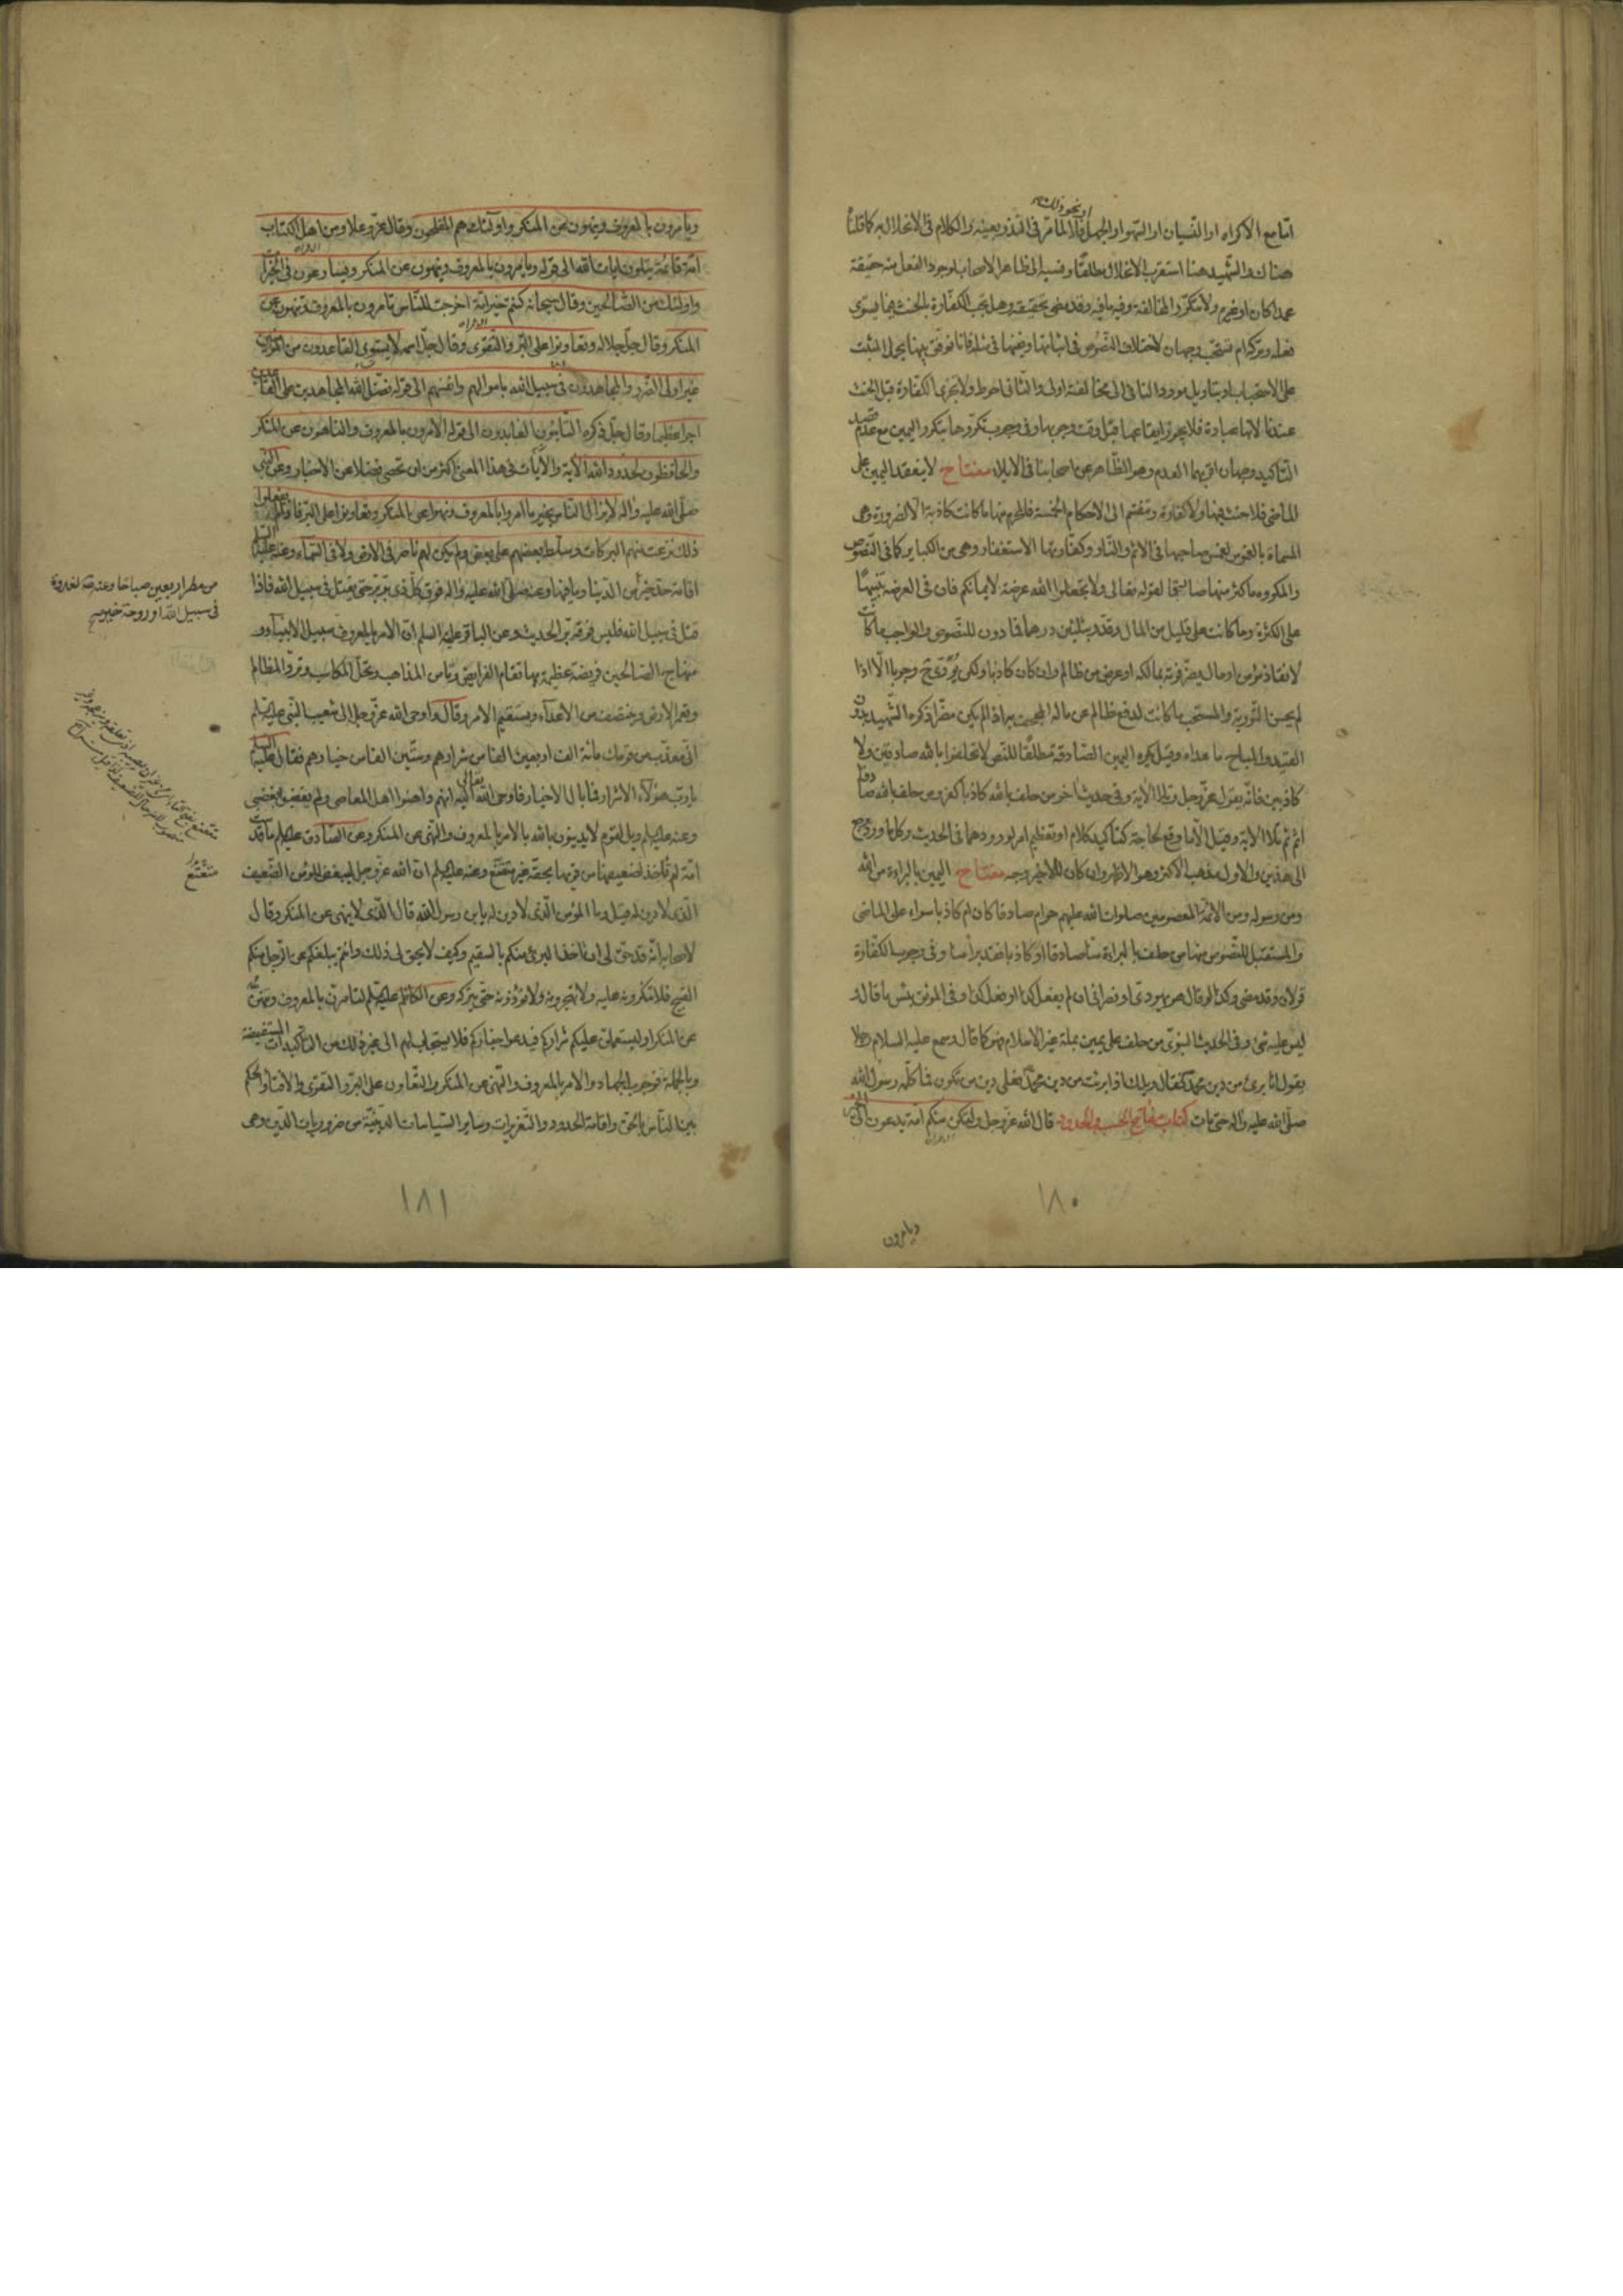 او نحو ذلك
اما مع الاكراه او النسيان او السهو او الجهل فلا لما مر في النذر بعينه والكلام في الانحلال به كما قلنا
هناك والشهيد هنا استقرب الانحلال مطلقا ونسبه الى ظاهر الاصحاب لوجود الفعل منه حقيقة
عمدا كان او غيره ولا يتكرر المخالفة وفيه ما فيه وقد مضى تحقيقه وهل يجب الكفارة بالحنث فيما يستوي
فعله وتركه ام يستحب وجهان لاختلاف النصوص في اثباتها ونفيها في مثله فانا نوفق بينها بحمل المثبت
على الاستحباب او بتاويل مورد النافي الى مخالفته اولى والثاني احوط ولا يجزي الكفارة قبل الحنث
عندنا لانها عبادة فلا يجوز ايقاعها قبل وقت وجوبها وفي وجوب تكررها بتكرر اليمين مع عدم قصد
التاكيد وجهان اقربهما العدم وهو الظاهر من اصحابنا في الايلاء مفتاح لا ينعقد اليمين على
الماضي فلا حنث فيها ولا كفارة وتنقسم الى الاحكام الخمسة فالحرم منها ما كانت كاذبة الا لضرورة وهي
المسماة بالغموس لغمس صاحبها في الاثم والنار وكفارتها الاستغفار وهي من الكباير كما في النصوص
والمكروه ما كثر منها صادقا لقوله تعالى ولا تجعلوا الله عرضة لايمانكم فان في العرضة تنبيها
على الكثرة وما كانت على قليل من المال وقدر بثلثين درهما فما دون للنصوص والواجب ما كانت
لانقاذ مؤمن او مال يضر فوته بمالكه او عرض من ظالم وان كان كاذبا ولكن يوري ح وجوبا الا اذا
لم يحسن التورية والمستحب ما كانت لدفع ظالم عن ماله المجحف به اذا لم يكن مضرا ذكره الشهيد بدون
القيد والمباح ما عداه وقيل يكره اليمين الصادقة مطلقا للنص لا تحلفوا بالله صادقين ولا
كاذبين فانه يقول عز وجل وتلا الاية وفي حديث اخر من حلف بالله كاذبا كفر ومن حلف بالله صادقا
اثم ثم تلا الاية وقيل الا ما وقع لحاجة كتاكيد كلام او تعظيم امر لورودهما في الحديث وكلما ورد يرجع
الى هذين والاول مذهب الاكثر وهو الاظهر وان كان للاخير وجه مفتاح اليمين بالبراءة من الله
ومن رسوله ومن الائمة المعصومين صلوات الله عليهم حرام صادقا كان ام كاذبا سواء على الماضي
والمستقبل للنصوص منها من حلف بالبراءة منا صادقا او كاذبا فقد برئ منا وفي وجوب الكفارة
قولان وقد مضى وكذا لو قال هو يهودي او نصراني ان لم يفعل كذا او فعل كذا وفي الموثق بئس ما قال و
ليس عليه شيء وفي الحديث النبوي من حلف على يمين بملة غير الاسلام فهو كما قال وسمع عليه السلام رجلا
يقول انا برئ من دين محمد فقال ويلك اذا برئت من دين محمد فعلى دين من تكون فما كلمه رسول الله
صلى الله عليه واله حتى مات كتاب مفاتيح الحسبة والحدود قال الله عز وجل ولتكن منكم امة يدعون الى الخير
١٨٠
ويامرون
ويأمرون بالمعروف وينهون عن المنكر واولئك هم المفلحون وقال عز وعلا ومن اهل الكتاب
امة قائمة يتلون ايات الله الى قوله ويامرون بالمعروف وينهون عن المنكر ويسارعون في الخيرات
واولئك من الصالحين وقال سبحانه كنتم خير امة اخرجت للناس تامرون بالمعروف وتنهون عن
المنكر وقال جل جلاله وتعاونوا على البر والتقوى وقال جل اسمه لا يستوي القاعدون من المؤمنين
غير اولي الضرر والمجاهدون في سبيل الله باموالهم وانفسهم الى قوله فضل الله المجاهدين على القاعدين
اجرا عظيما وقال جل ذكره التائبون العابدون الى قوله الامرون بالمعروف والناهون عن المنكر
والحافظون لحدود الله الاية والايات في هذا المعنى اكثر من ان تحصى فضلا عن الاخبار وعن النبي
صلى الله عليه واله لا يزال الناس بخير ما امروا بالمعروف ونهوا عن المنكر وتعاونوا على البر فاذا لم يفعلوا
ذلك نزعت منهم البركات وسلط بعضهم على بعض ولم يكن لهم ناصر في الارض ولا في السماء وعنه عليه السلم
اقامة حد خير من الدنيا وما فيها وعنه صلى الله عليه واله فوق كل ذي بر بر حتى يقتل في سبيل الله فاذا
قتل في سبيل الله فليس فوقه بر الحديث وعن الباقر عليه السلم ان الامر بالمعروف سبيل الانبياء و
منهاج الصالحين فريضة عظيمة بها تقام الفرايض وتامن المذاهب وتحل المكاسب وترد المظالم
وتعمر الارض وينتصف من الاعداء ويستقيم الامر وقال اوحى الله عز وجل الى شعيب النبي عليه السلم
اني معذب من قومك مائة الف اربعين الفا من شرارهم وستين الفا من خيارهم فقال عليه السلم
يا رب هؤلاء الاشرار فما بال الاخيار فاوحى الله تعالى اليه انهم داهنوا اهل المعاصي ولم يغضبوا لغضبي
وعنه عليه السلم ويل لقوم لا يدينون بالله بالامر بالمعروف والنهي عن المنكر وعن الصادق عليه السلم ما قدست
امة لم تاخذ لضعيفها من قويها بحقه غير متعتع وعنه عليه السلم ان الله عز وجل ليبغض المؤمن الضعيف
الذي لا دين له فقيل وما المؤمن الذي لا دين له يا بن رسول الله قال الذي لا ينهى عن المنكر وقال
لاصحابه انه قد حق لي ان اخذ البرئ منكم بالسقيم وكيف لا يحق لي ذلك وانتم يبلغكم عن الرجل منكم
القبيح فلا تنكرونه عليه ولا تهجرونه ولا تؤذونه حتى يتركه وعن الكاظم عليه السلم لتامرن بالمعروف ولتنهن
عن المنكر او ليستعملن عليكم شراركم فيدعوا خياركم فلا يستجاب لهم الى غير ذلك من التاكيدات المستفيضة
وبالجملة فوجوب الجهاد والامر بالمعروف والنهي عن المنكر والتعاون على البر والتقوى والافتاء والحكم
بين الناس بالحق واقامة الحدود والتعزيرات وساير السياسات الدينية من ضروريات الدين وهي
من مطر اربعين صباحا وعنه ص لغدوة
في سبيل الله او روحة خير
متعتع
١٨١